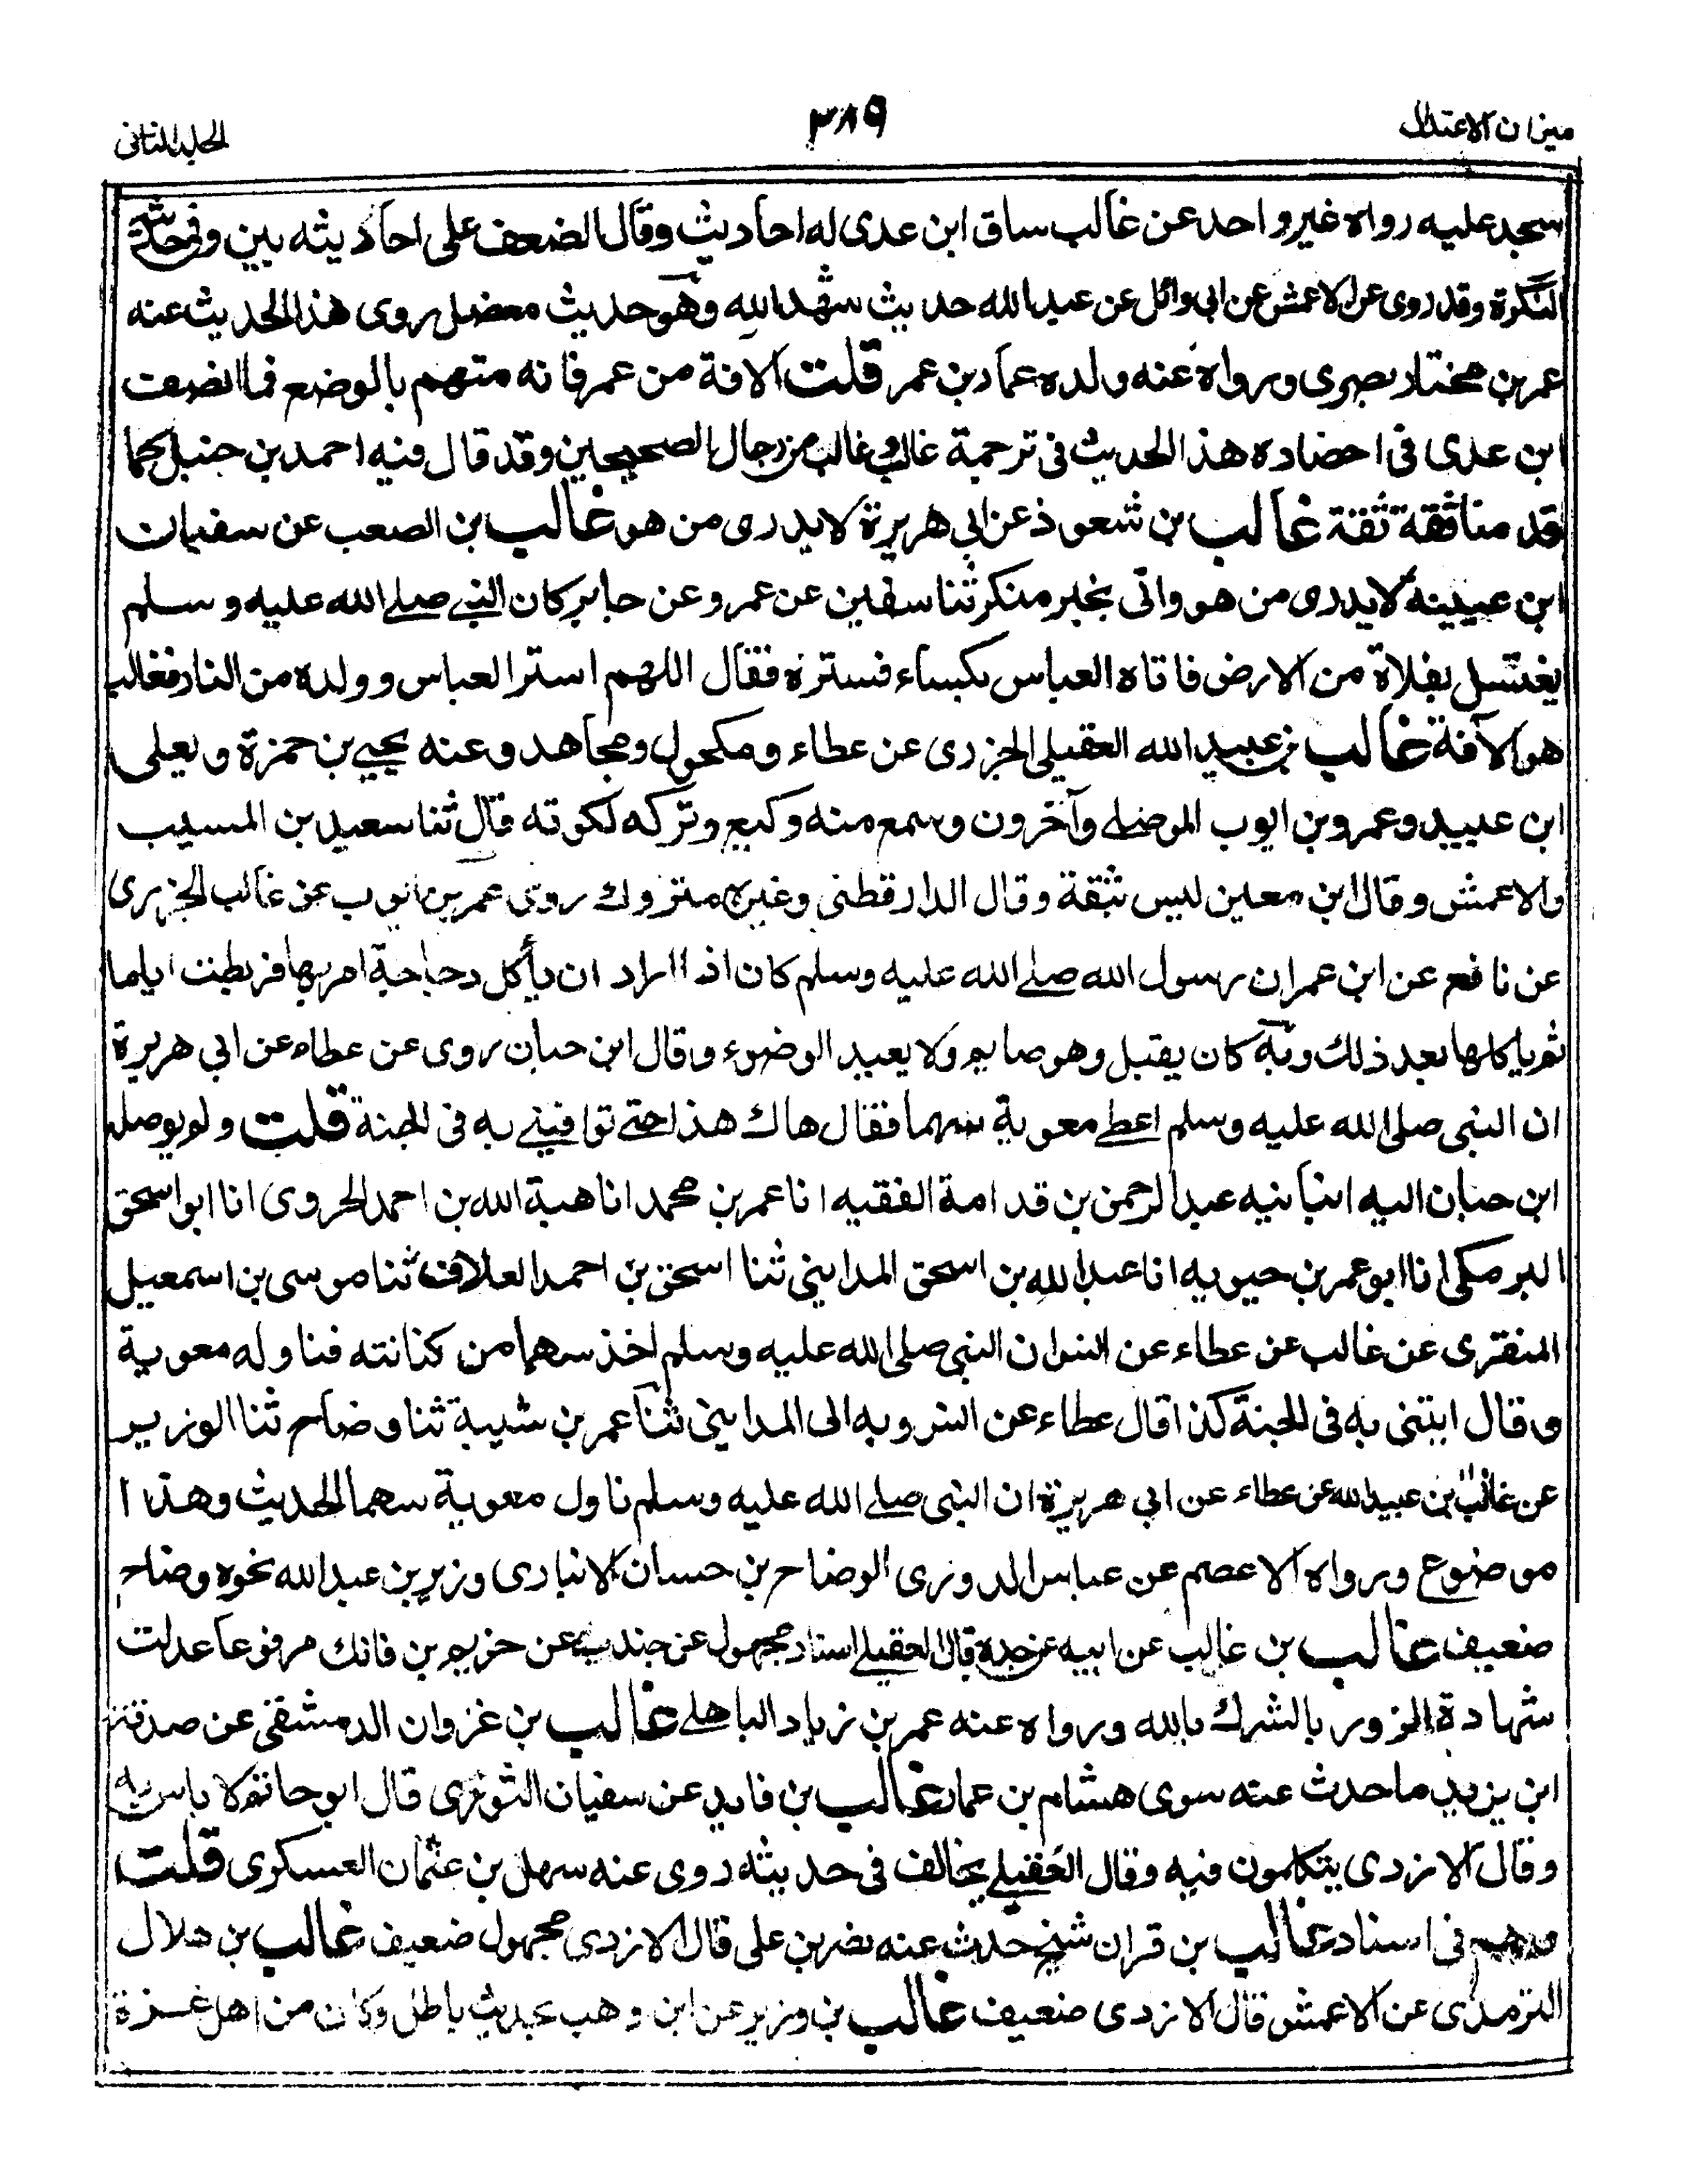 ميزان الاعتدال
٣٨٩
الجلد الثانى
سجد عليه رواه غير واحد عن غالب ساق ابن عدى له احاديث وقال الضعف على احاديثه بين وفى حديثه
النكرة وقد روى عن الاعمش عن ابى وائل عن عبد الله حديث شهد الله وهو حديث معضل روى هذا الحديث عنه
عمر بن مختار بصرى ورواه عنه ولده عمار بن عمر قلت الافة من عمر فانه متهم بالوضع فما انصف
ابن عدى فى احضاره هذا الحديث فى ترجمة غالب وغالب من رجال الصحيحين وقد قال فيه احمد بن حنبل كما
قدمنا ثقة ثقة غالب بن شعوذ عن ابى هريرة لا يدرى من هو غالب بن الصعب عن سفيان
ابن عيينه لا يدرى من هو واتى بخبر منكر ثنا سفين عن عمرو عن جابر كان النبى صلى الله عليه وسلم
يغتسل بفلاة من الارض فاتاه العباس بكساء فستره فقال اللهم استر العباس وولده من النار فغالب
هو الآفة غالب بن عبيد الله العقيلى الجزرى عن عطاء ومكحول ومجاهد وعنه يحيى بن حمزة ويعلى
ابن عبيد وعمرو بن ايوب الموصلى وآخرون وسمع منه وكيع وتركه لكونه قال ثنا سعيد بن المسيب
والاعمش وقال ابن معين ليس بثقة وقال الدارقطنى وغيره متروك روى عمر بن ايوب عن غالب الجزرى
عن نافع عن ابن عمر ان رسول الله صلى الله عليه وسلم كان اذا اراد ان يأكل دجاجة امر بها فربطت اياما
ثم ياكلها بعد ذلك وبه كان يقبل وهو صايم ولا يعيد الوضوء وقال ابن حبان روى عن عطاء عن ابى هريرة
ان النبى صلى الله عليه وسلم اعطى معوية سهما فقال هاك هذا حتى توافينى به فى الجنة قلت ولم يوصله
ابن حبان اليه انبانيه عبد الرحمن بن قدامة الفقيه انا عمر بن محمد انا هبة الله بن احمد الحروى انا ابو اسحق
البرمكى انا ابو عمر بن حيويه انا عبد الله بن اسحق المداينى ثنا اسحق بن احمد العلاف ثنا موسى بن اسمعيل
المنقرى عن غالب عن عطاء عن انس ان النبى صلى الله عليه وسلم اخذ سهما من كنانته فناوله معوية
وقال ايتنى به فى الجنة كذا قال عطاء عن انس وبه الى المداينى ثنا عمر بن شيبة ثنا وضاح ثنا الوزير
عن غالب بن عبيد الله عن عطاء عن ابى هريرة ان النبى صلى الله عليه وسلم ناول معوية سهما الحديث وهذا
موضوع ورواه الاعصم عن عباس الدورى الوضاح بن حسان الانبارى وزير بن عبد الله نحوه وضاح
ضعيف غالب بن غالب عن ابيه عن جده قال العقيلى اسناد مجهول عن جندب عن خريم بن فاتك مرفوعا عدلت
شهادة الزور بالشرك بالله ورواه عنه عمر بن زياد الباهلى غالب بن غزوان الدمشقى عن صدقة
ابن يزيد ما حدث عنه سوى هشام بن عمار غالب بن فايد عن سفيان الثورى قال ابو حاتم لا باس به
وقال الازدى يتكلمون فيه وقال العقيلى يخالف فى حديثه روى عنه سهل بن عثمان العسكرى قلت
وهم فى اسناد غالب بن قران شيخ حدث عنه نصر بن على قال الازدى مجهول ضعيف غالب بن هلال
الترمذى عن الاعمش قال الازدى ضعيف غالب بن وزير عن ابن وهب بحديث باطل وكان من اهل غزة